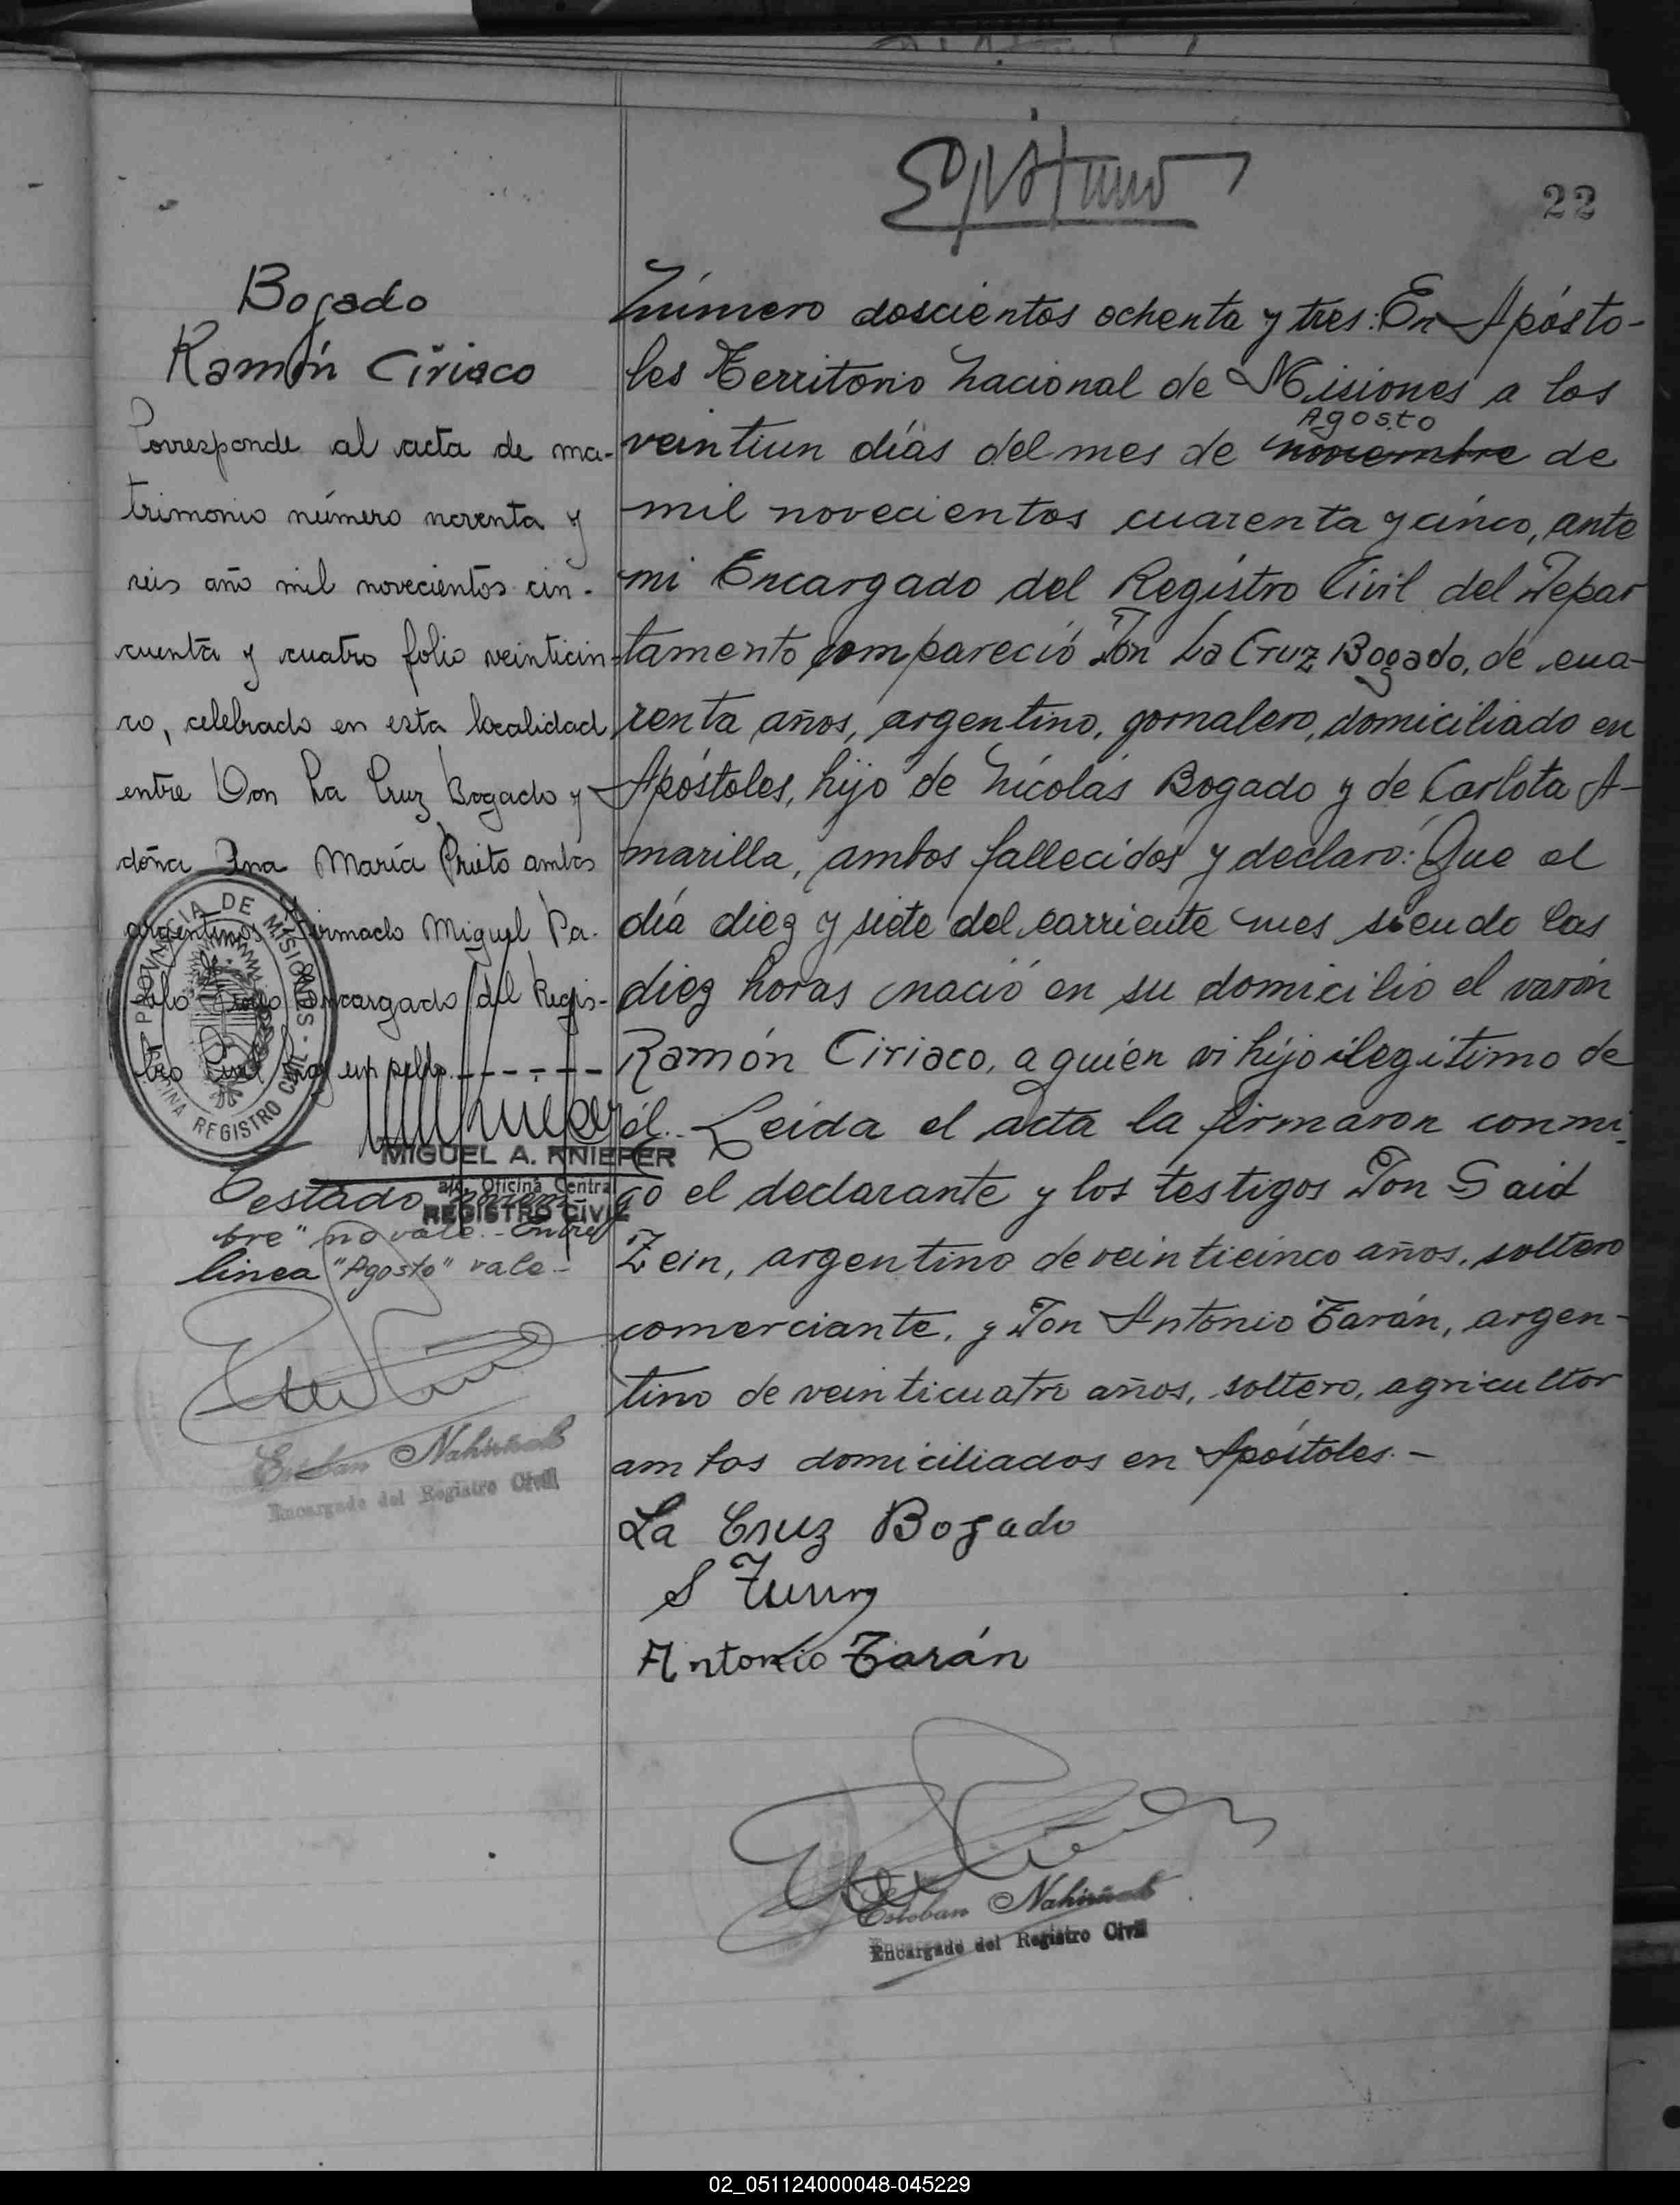 22
Bogado
Ramón Ciriaco
Corresponde al acta de ma-
trimonio número noventa y
seis año mil novecientos cin-
cuenta y cuatro folio veinticin-
co, celebrado en esta localidad
entre Don La Cruz Bogado y
doña Ana María Prieto ambos
argentinos Firmado Miguel Pa-
encargado del Regis-
tro Civil hay un sello.------
PROVINCIA DE MISIONES - REGISTRO CIVIL
MIGUEL A. KNIEPER
a/c. Oficina Central
REGISTRO CIVIL
Testado "noviem-
bre" no vale.- Entre
linea "Agosto" vale-
Esteban
Encargado del Registro Civil
Número doscientos ochenta y tres: En Apósto-
les Territorio Nacional de Misiones a los
Agosto
veintiun días del mes de noviembre de
mil novecientos cuarenta y cinco, ante
mi Encargado del Registro Civil del Depar
tamento compareció Don La Cruz Bogado, de cua-
renta años, argentino, jornalero, domiciliado en
Apóstoles, hijo de Nicolás Bogado y de Carlota A-
marilla, ambos fallecidos y declaró: Que el
día diez y siete del corriente mes siendo las
diez horas nació en su domicilio el varón
Ramón Ciriaco, a quien vi hijo ilegitimo de
él.- Leida el acta la firmaron conmi-
go el declarante y los testigos Don Said
Zein, argentino de veinticinco años, soltero
comerciante, y Don Antonio Tarán, argen-
tino de veinticuatro años, soltero, agricultor
ambos domiciliados en Apóstoles.-
La Cruz Bogado
Antonio Tarán
Esteban
Encargado del Registro Civil
02_051124000048-045229